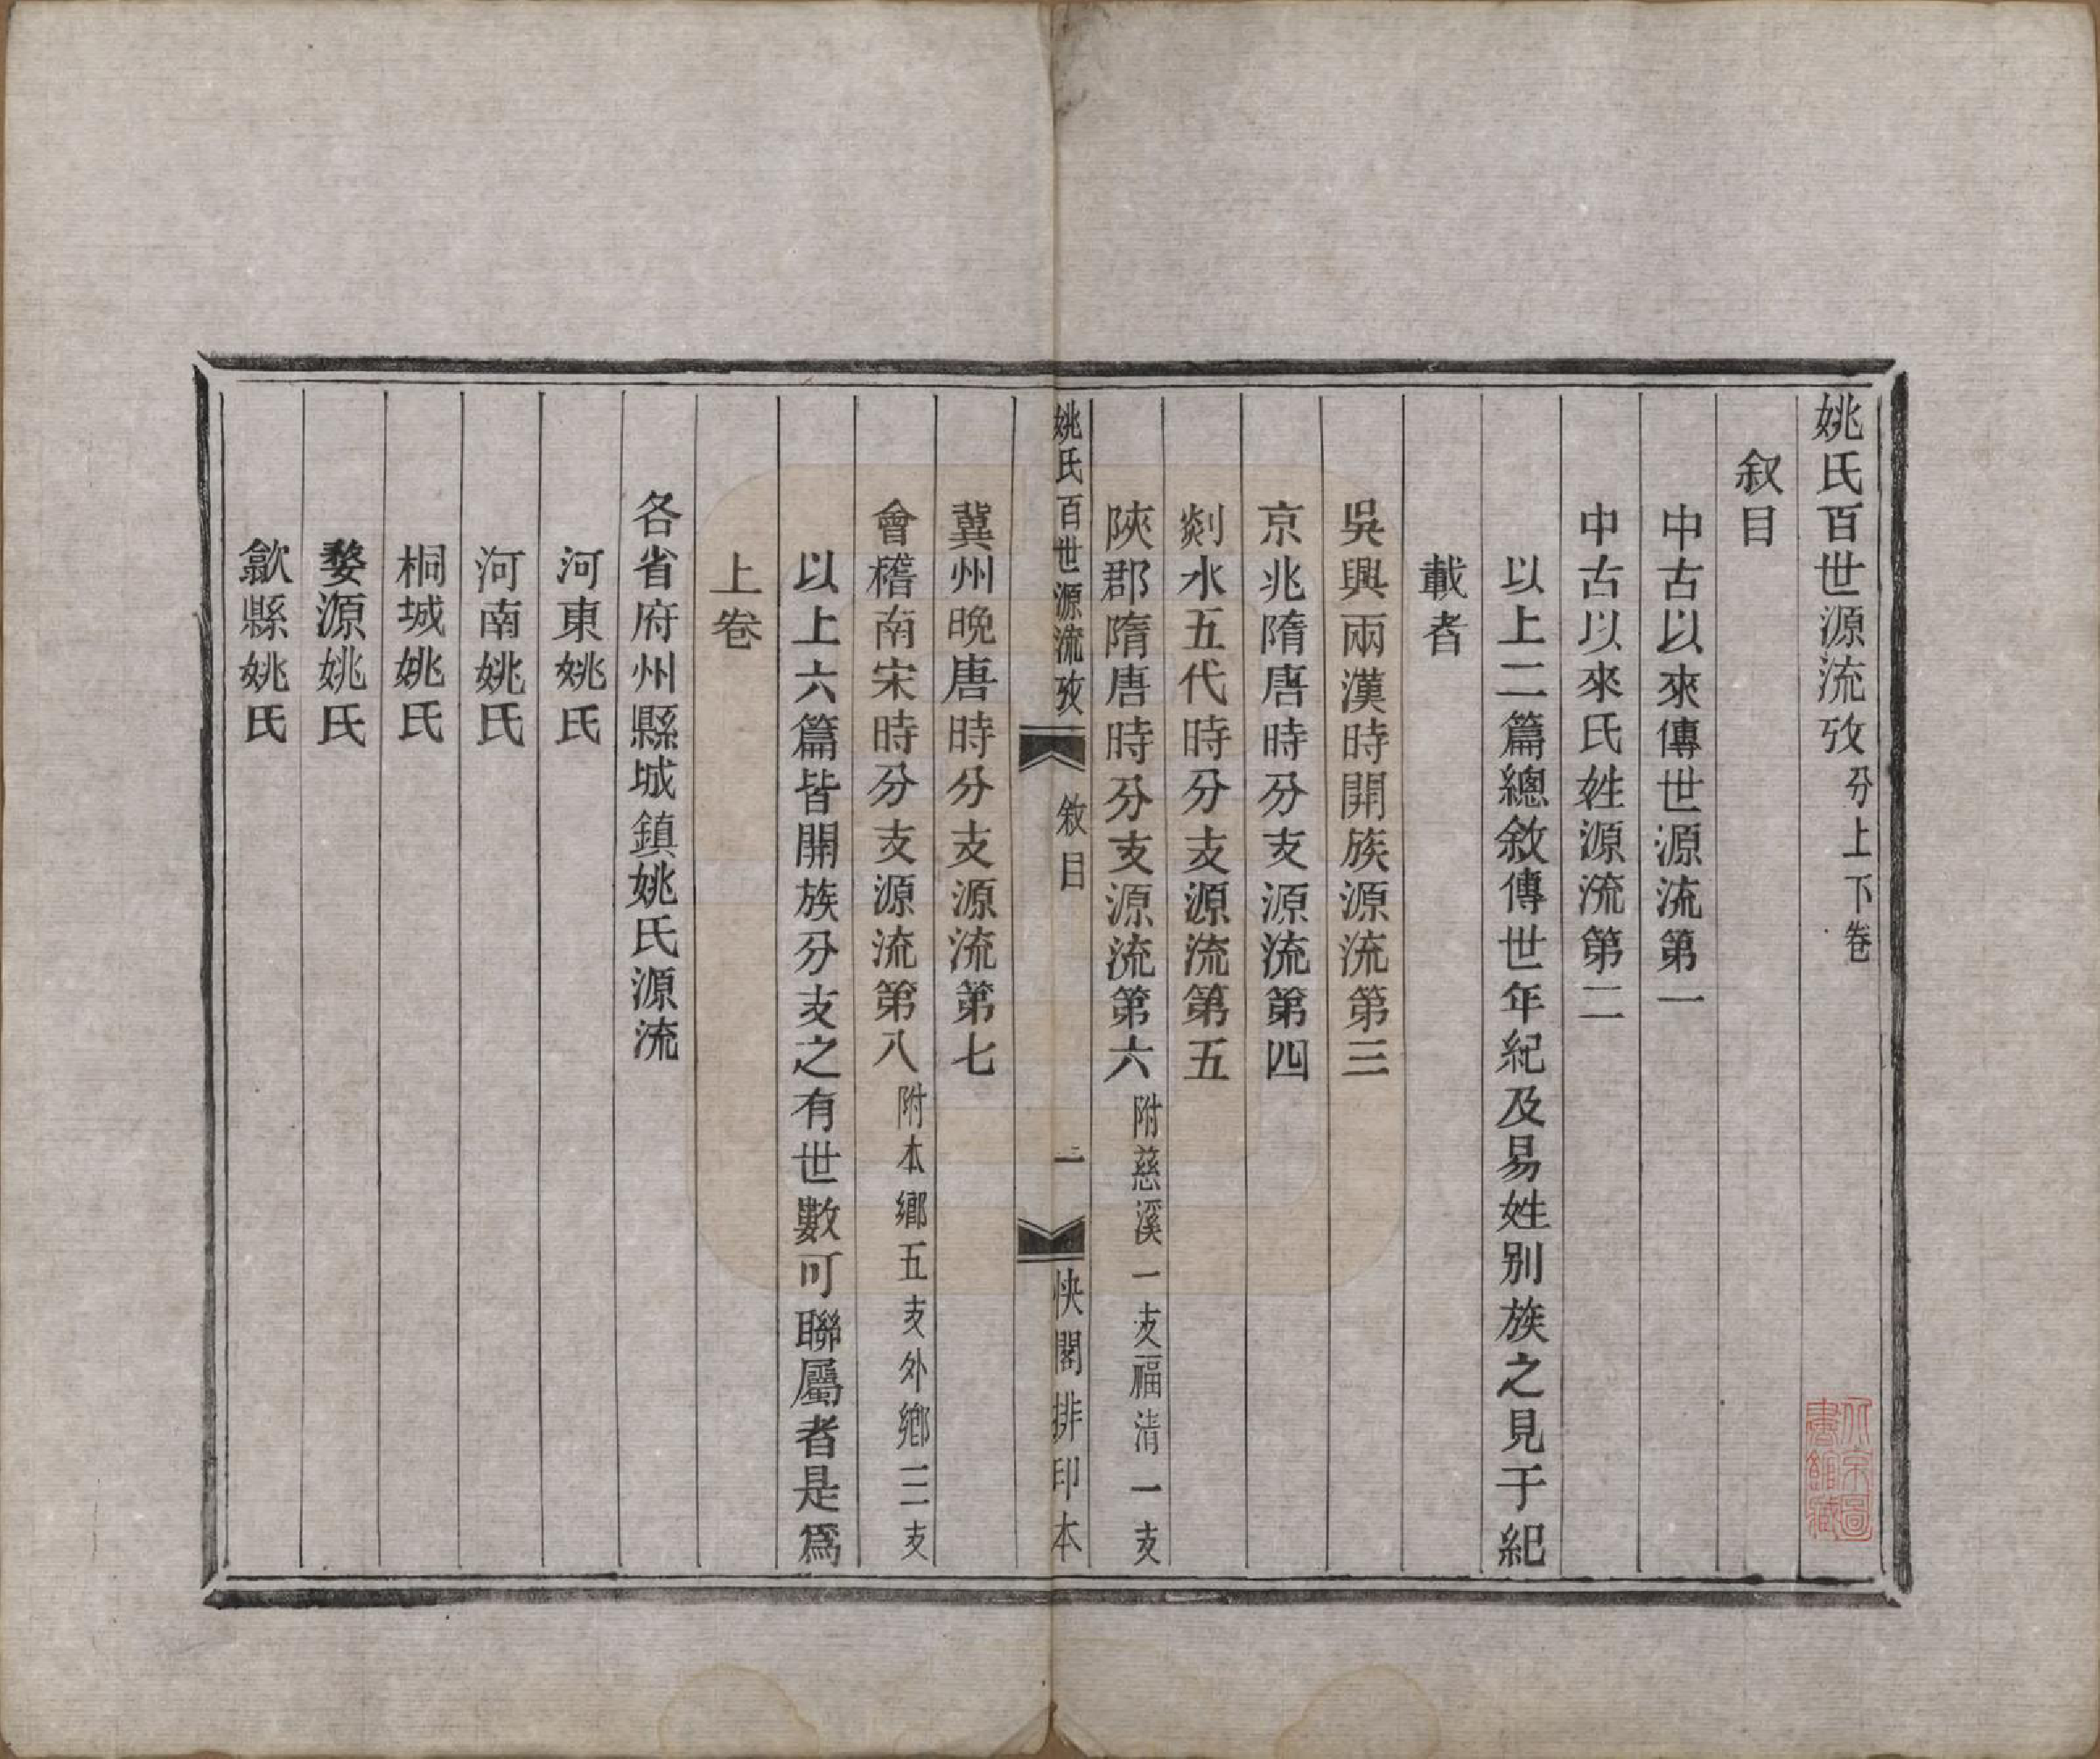 姚氏百世源流攷分上下卷
叙目
中古以來傳世源流第一
中古以來氏姓源流第二
以上二篇總敘傳世年紀及易姓別族之見于紀
載者
吳興兩漢時開族源流第三
京兆隋唐時分支源流第四
剡水五代時分支源流第五
陝郡隋唐時分支源流第六附慈溪一支福清一支
姚氏百世源流攷
敘目
一
快閣排印本
冀州晚唐時分支源流第七
會稽南宋時分支源流第八附本鄉五支外鄉三支
以上六篇皆開族分支之有世數可聯屬者是爲
上卷
各省府州縣城鎮姚氏源流
河東姚氏
河南姚氏
桐城姚氏
婺源姚氏
歙縣姚氏
北京圖
書館藏